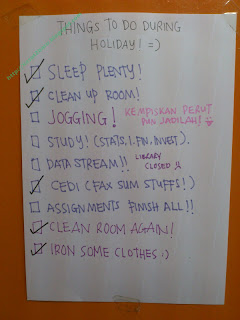 THINGS TO DO DURING
HOLIDAY! =)
SLEEP PLENTY!
CLEAN UP ROOM!
JOGGING! KEMPISKAN PERUT
PUN JADILAH!
STUDY! (STATS, I.FIN, INVEST).
DATA STREAM!! LIBRARY
CLOSED
CEDI (FAX SUM STUFFS!)
ASSIGNMENTS FINISH ALL!!
CLEAN ROOM AGAIN!
IRON SOME CLOTHES :)